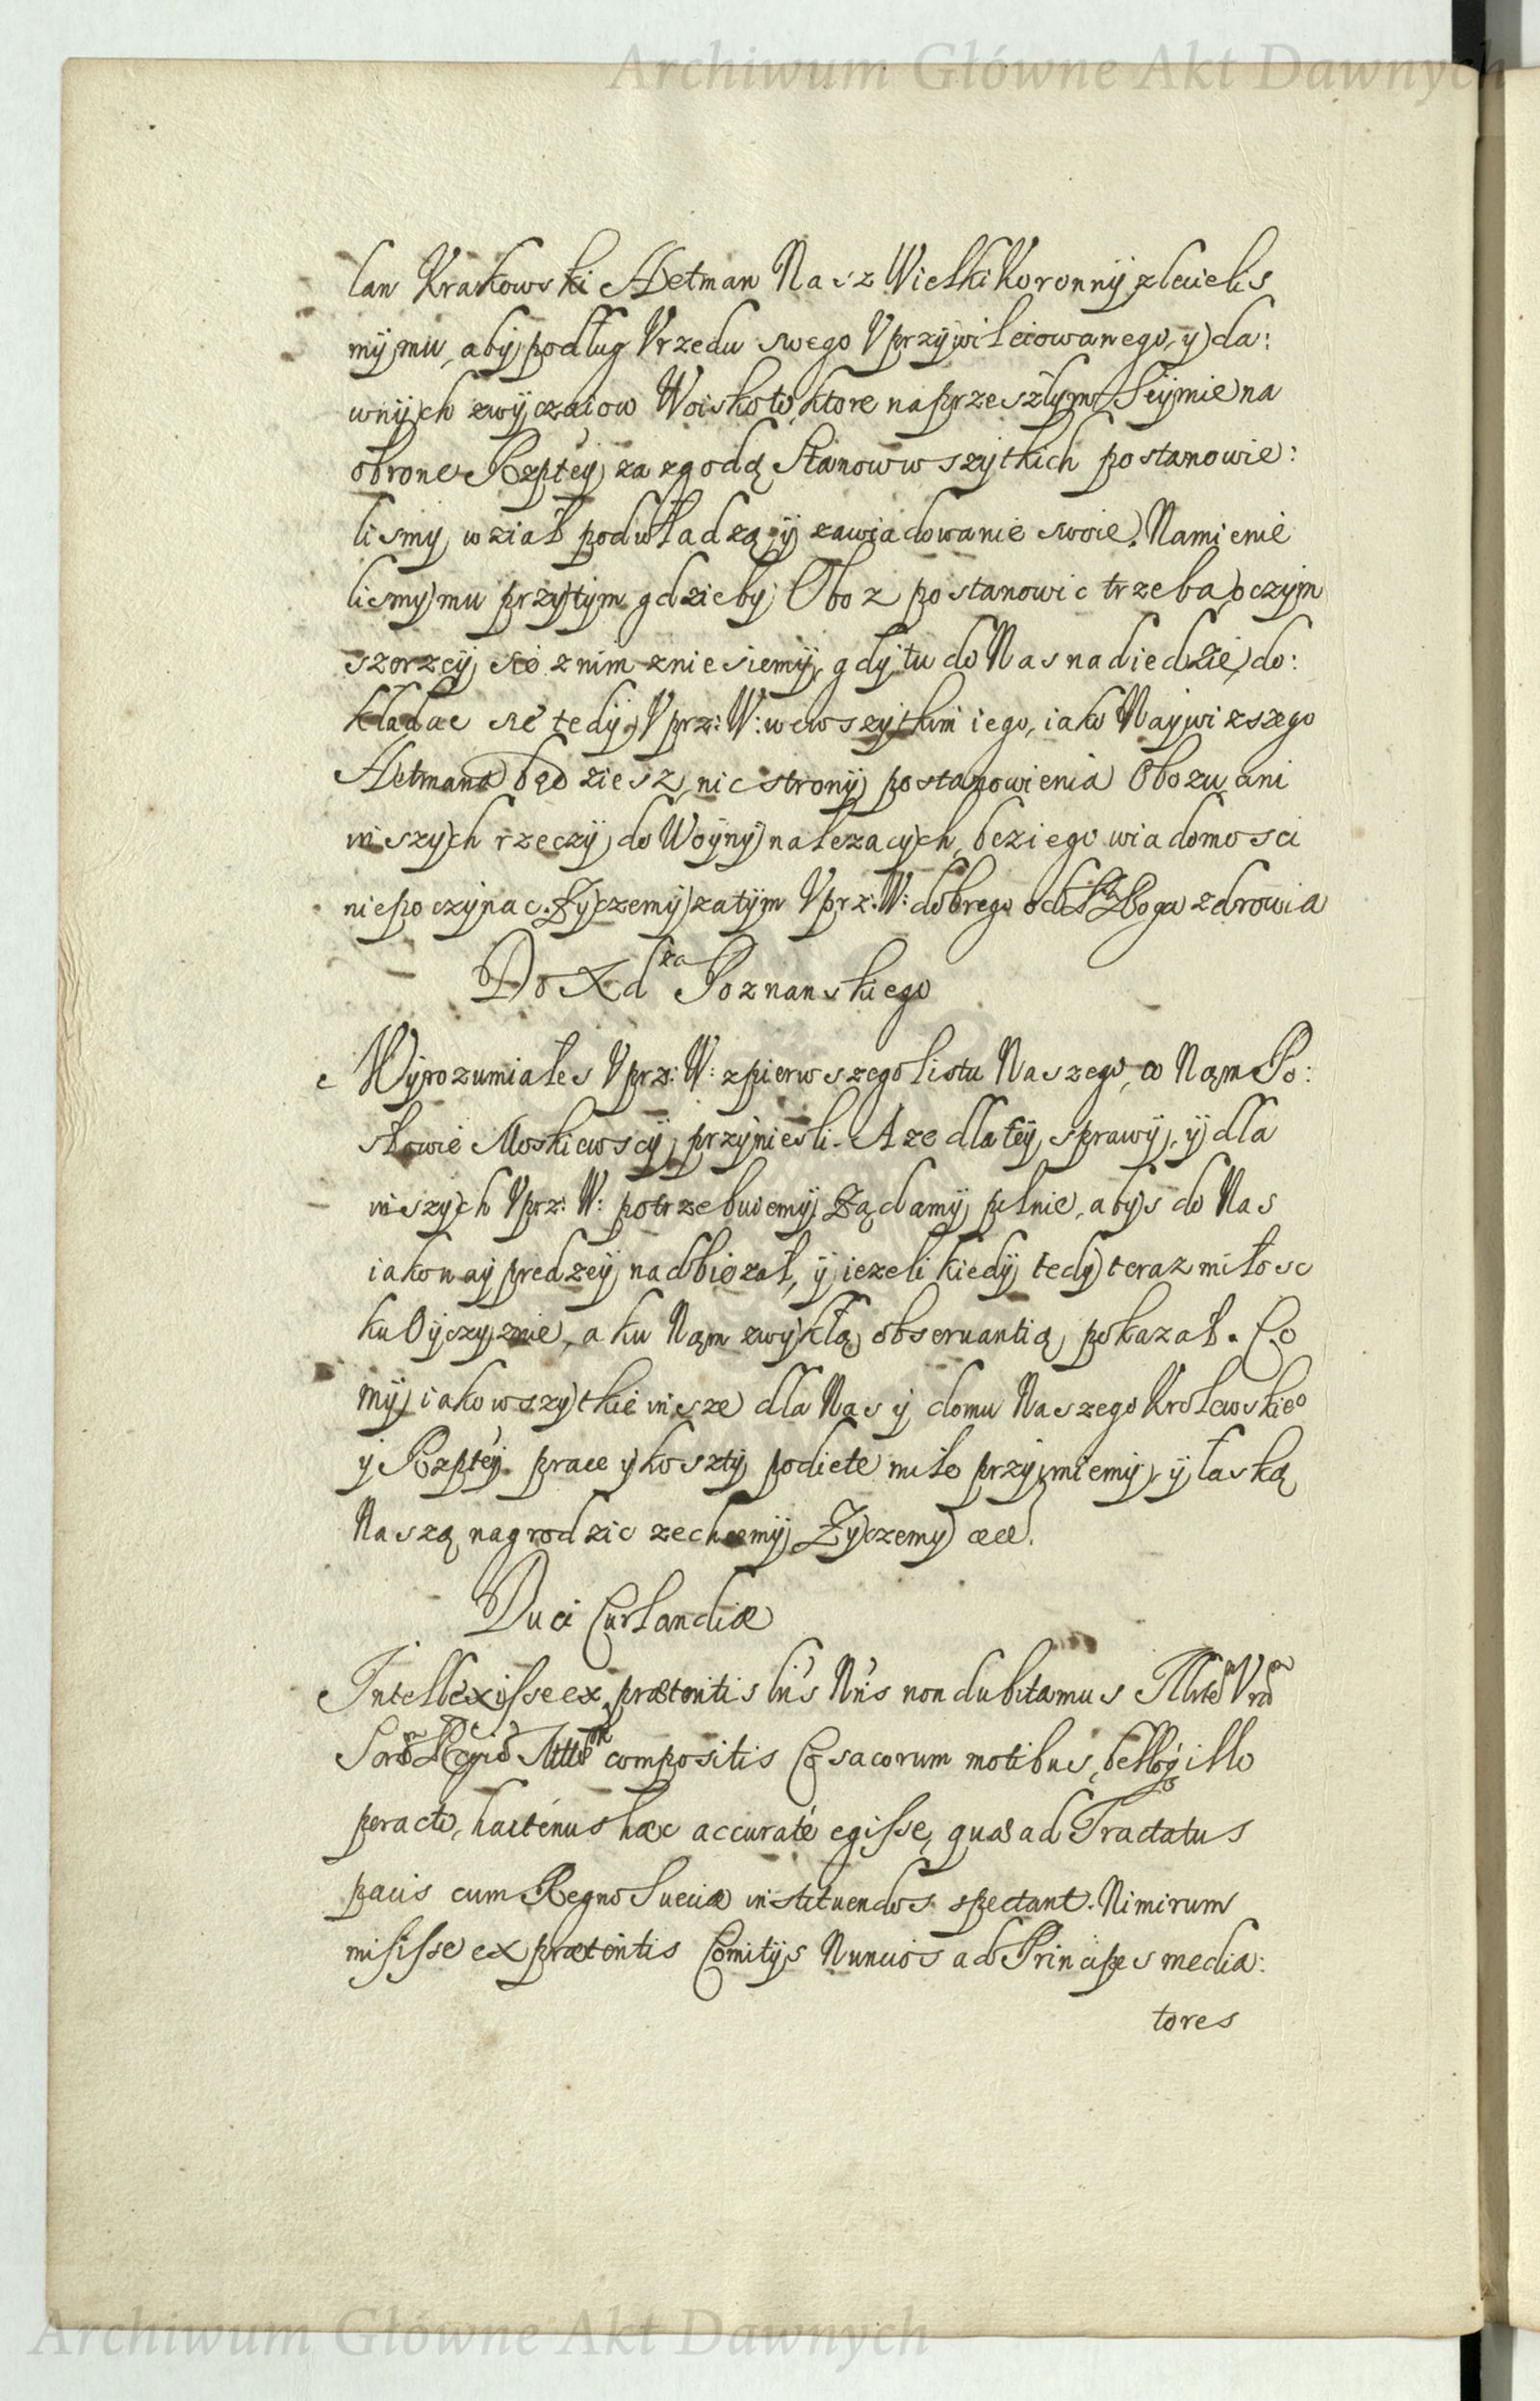 Archiwum Główne Akt Dawnych
lan Krakowski Hetman Nasz Wielki Koronny zlecielis
my mu, aby podług Vrzedu swego Vprzywileiowanego, y da:
wnych zwyczaiow Woisko to, ktore na przeszłym Seymie na
obrone Rzptey za zgodą Stanow wszytkich postanowie:
lismy, wział pod władzą y zawiadowanie swoie. Namienie
lismy mu przytym gdzieby Oboz postanowic trzeba, o czym
szorzey sie znim zniesiemy, gdy tu do Nas nadiedzie, do:
kładac sie tedy Vprz: W: we wszytkim iego, iako Naywizszego
Hetmana będziesz, nic strony postanowienia Obozu, ani
inszych rzeczy do Woyny nalezacych, bez iego wiadomosci
niepoczynac. Zyczemy zatym Vprz: W: dobrego od Boga zdrowia
Do Xdza Poznanskiego
e Wyrozumiałes Vprz: W: zpierwszego listu Naszego, co Nąm Po:
słowie Moskiewscy przyniesli. A ze dla tey sprawy, y dla
inszych Vprz: W: potrzebuiemy, Żądamy pilnie, abys do Nas
iako nay predzey nadbiezał, y iezeli kiedy tedy teraz miłosc
ku Oyczyznie, a ku Nąm zwykłą obseruantią pokazał. Co
my iako wszytkie insze dla Nas y domu Naszego Krolewskieo
y Rzptey prace y koszty podiete mile przyjmiemy, y łaską
Naszą nagrodzic zechcemy, Zyczemy etc.
Duci Curlandiæ
Intellexisse ex præteritis lris Nris non dubitamus Illrtem Vram
compositis Cosacorum motibus, belloq illo
peracto, hactenus hæc accuratè egisse, quæ ad Tractatus
pacis cum Regno Sueciæ instituendos spectant. Nimirum
misisse ex præteritis Comitys Nuncios ad Principes media:
tores
Archiwum Główne Akt Dawnych